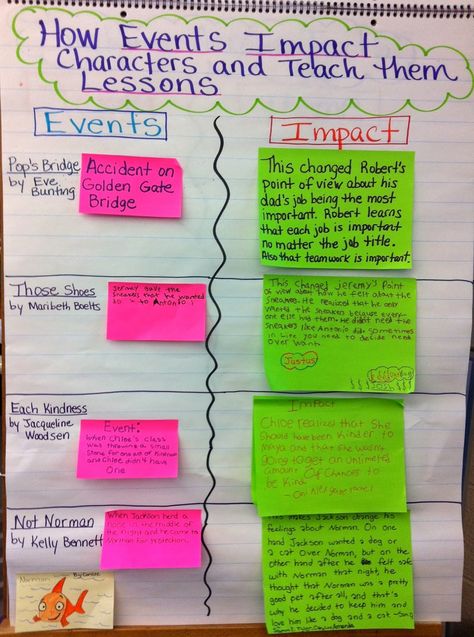 How Events Impact
Characters and Teach them
Lessons
Events
Impact
Pop's Bridge
by Eve
Bunting
Accident on
Golden Gate
Bridge
This changed Robert's
point of view about his
dad's job being the most
important. Robert learns
that each job is important
no matter the job title.
Also that teamwork is important.
Those Shoes
by Maribeth Boelts
Jeremy gave the
sneakers that he wanted
to Antonio
This changed Jeremy's Point
of view about how he felt about the
sneakers. He realized that he only
wanted the sneakers because every-
one else had them. He didn't need the
sneakers like Antonio did. Sometimes
in life you need to decide need
over want.
Justus
Josh
Each Kindness
by Jacqueline
Woodsen
Event:
When Chloe's class
was throwing a small
Stone for one act of kindness
and Chloe didn't have
One
Impact
Chloe realized that She
Should have been Kinder to
Maya and that She wasn't
going to get an unlimited
amount of Chances to
be Kind
Not Norman
by Kelly Bennett
When Jackson herd a
noise in the middle of
the night and he came to
Norman for protection.
Norman
makes Jackson change his
feelings about Norman. On one
hand Jackson wanted a dog or
a cat over Norman, but on the
other hand after he felt safe
with Norman that night, he
thought that Norman was a pretty
good pet after all, and that's
why he decided to keep him and
love him like a dog and a cat